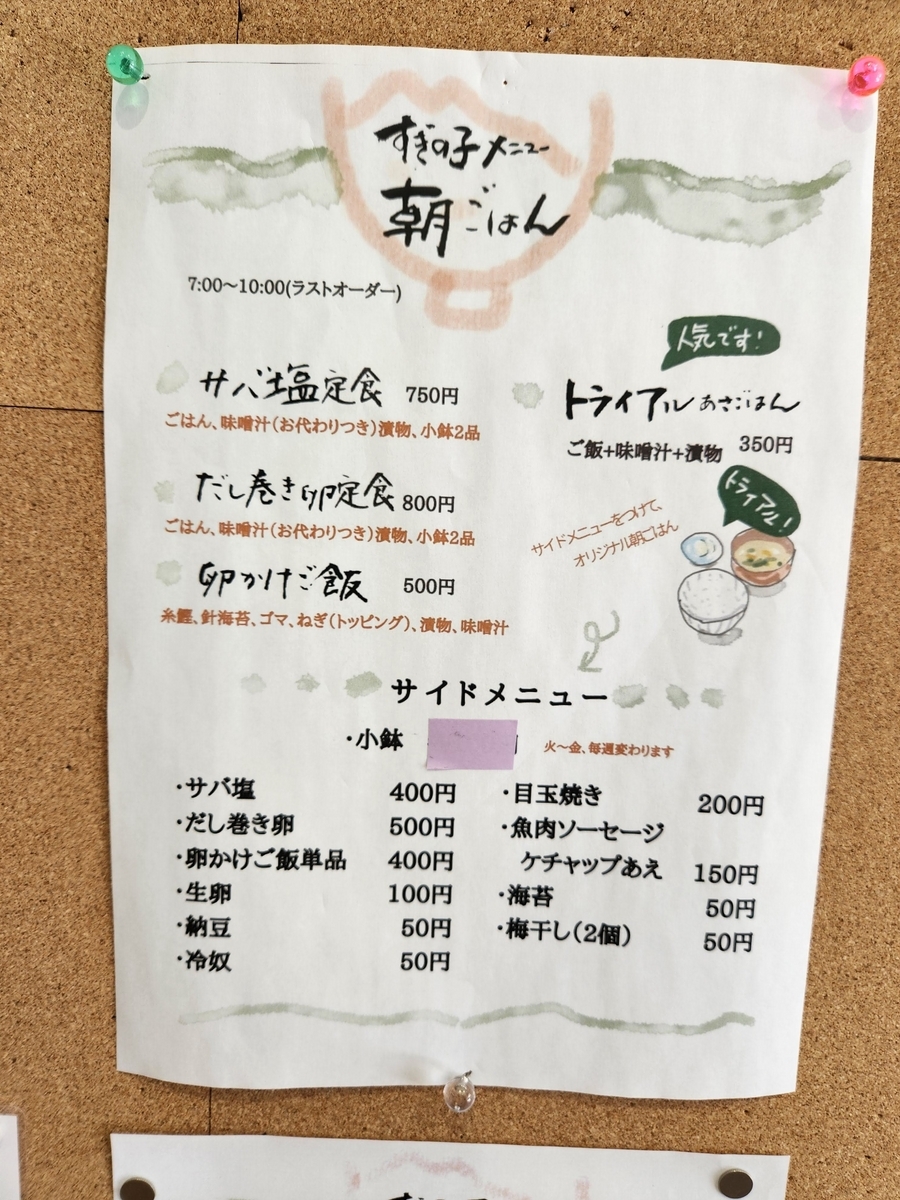 すぎの子メニュー
朝ごはん
7:00～10:00(ラストオーダー)
サバ塩定食 750円
ごはん、味噌汁(お代わりつき)漬物、小鉢2品
だし巻き卵定食 800円
ごはん、味噌汁(お代わりつき)漬物、小鉢2品
卵かけご飯 500円
糸鰹、針海苔、ゴマ、ねぎ(トッピング)、漬物、味噌汁
人気です!
トライアルあさごはん
ご飯+味噌汁+漬物 350円
トライアル!
サイドメニューをつけて、
オリジナル朝ごはん
サイドメニュー
・小鉢
火～金、毎週変わります
・サバ塩 400円
・だし巻き卵 500円
・卵かけご飯単品 400円
・生卵 100円
・納豆 50円
・冷奴 50円
・目玉焼き 200円
・魚肉ソーセージ
ケチャップあえ 150円
・海苔 50円
・梅干し(2個) 50円